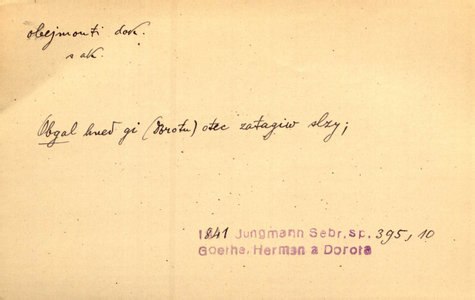 obejmouti dok.
s ak.
Obgal hned gi (Dorotu) otec zatagiw slzy;
1841 Jungmann Sebr. sp. 395, 10
Goethe, Herman a Dorota